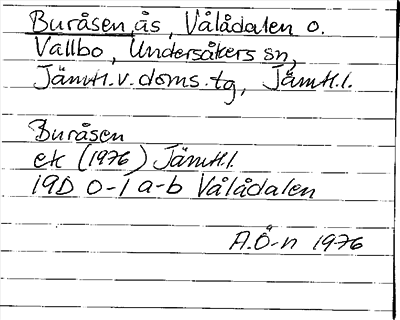 Buråsen, ås, Vålådalen o.
Vallbo, Undersåkers sn,
Jämtl.v.doms.tg, Jämtl.l.
Buråsen
ek (1976) Jämtl.l.
19D 0-1 a-b Vålådalen
A.Ö-n 1976